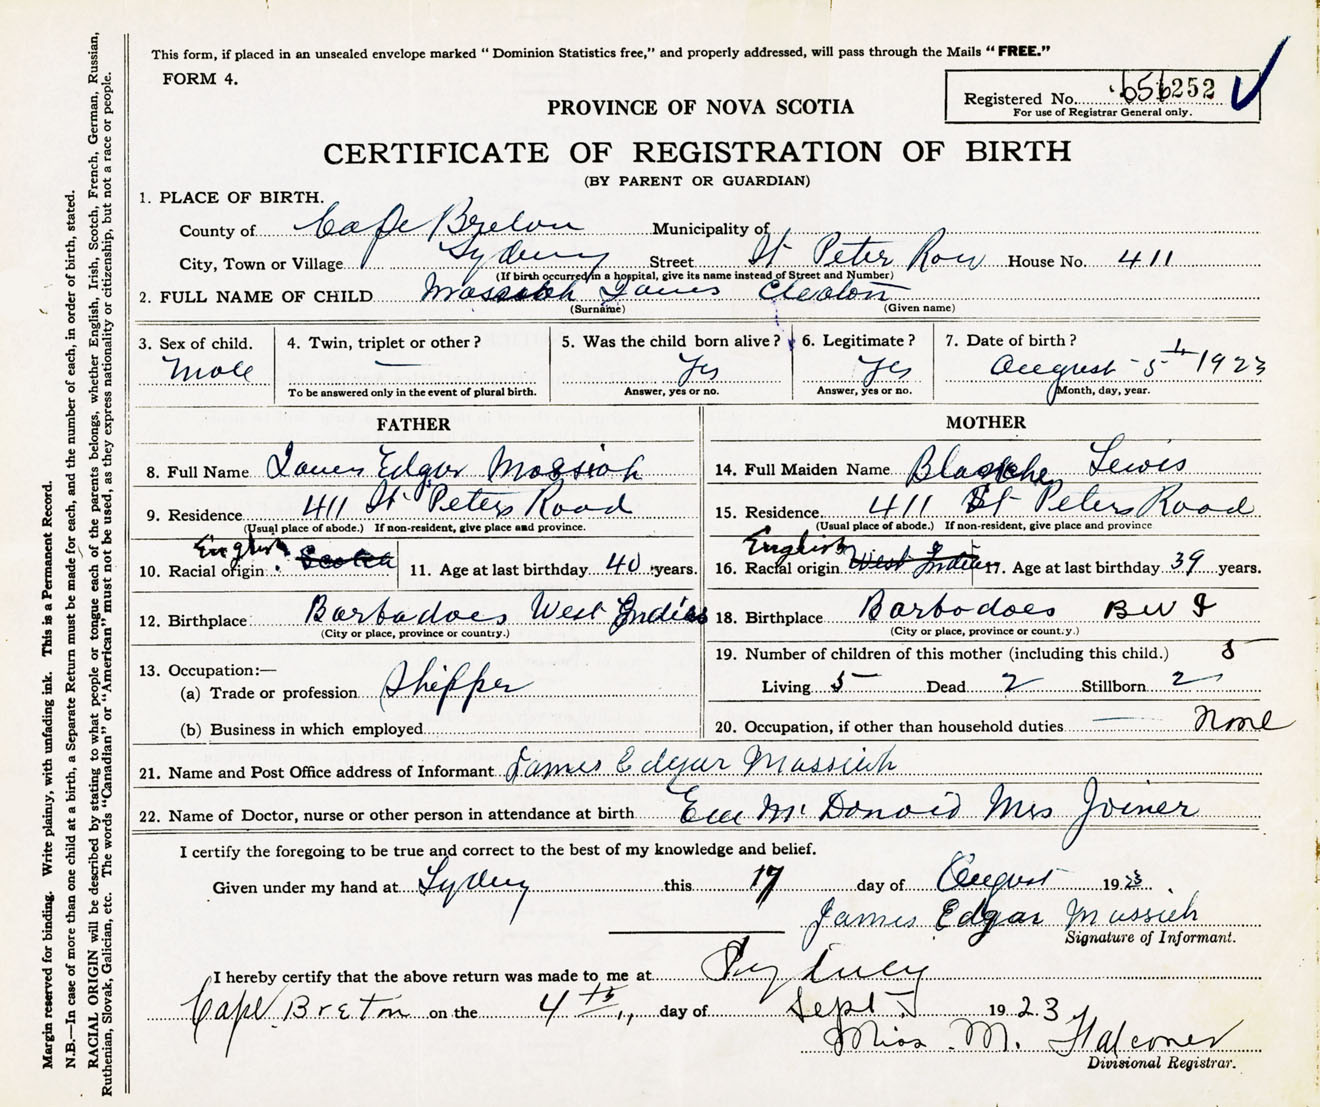 This form, if placed in an unsealed envelope marked "Dominion Statistics free," and properly addressed, will pass through the Mails "FREE."
FORM 4.
Registered No. 656252
For use of Registrar General only.
PROVINCE OF NOVA SCOTIA
CERTIFICATE OF REGISTRATION OF BIRTH
(BY PARENT OR GUARDIAN)
1. PLACE OF BIRTH.
County of Cape Breton Municipality of
City, Town or Village Sydney Street St Peter Row House No. 411
(If birth occurred in a hospital, give its name instead of Street and Number)
2. FULL NAME OF CHILD Massiah James Cleaton
(Surname) (Given name)
3. Sex of child. 4. Twin, triplet or other? 5. Was the child born alive? 6. Legitimate? 7. Date of birth?
Male — Yes Yes August 5th 1923
To be answered only in the event of plural birth. Answer, yes or no. Answer, yes or no. Month, day, year.
FATHER
8. Full Name James Edgar Massiah
9. Residence 411 St Peters Road
(Usual place of abode.) If non-resident, give place and province.
English
10. Racial origin Scotch 11. Age at last birthday 40 years.
12. Birthplace Barbadoes West Indies
(City or place, province or country.)
13. Occupation:—
(a) Trade or profession Shipper
(b) Business in which employed
MOTHER
14. Full Maiden Name Blanche Lewis
15. Residence 411 St Peters Road
(Usual place of abode.) If non-resident, give place and province
English
16. Racial origin West Indies 17. Age at last birthday 39 years.
18. Birthplace Barbadoes B W I
(City or place, province or country.)
19. Number of children of this mother (including this child.) 5
Living 5 Dead 2 Stillborn 2
20. Occupation, if other than household duties — None
21. Name and Post Office address of Informant James Edgar Massiah
22. Name of Doctor, nurse or other person in attendance at birth McDonald Mrs Joiner
I certify the foregoing to be true and correct to the best of my knowledge and belief.
Given under my hand at Sydney this 17 day of August 1923.
James Edgar Massiah
Signature of Informant.
I hereby certify that the above return was made to me at Sydney
Cape Breton on the 4th day of Sept 1923
Miss M. Falconer
Divisional Registrar.
Margin reserved for binding. Write plainly, with unfading ink. This is a Permanent Record.
N.B.—In case of more than one child at a birth, a Separate Return must be made for each, and the number of each, in order of birth, stated.
RACIAL ORIGIN will be described by stating to what people or tongue each of the parents belongs, whether English, Irish, Scotch, French, German, Russian,
Ruthenian, Slovak, Galician, etc. The words "Canadian" or "American" must not be used, as they express nationality or citizenship, but not a race or people.